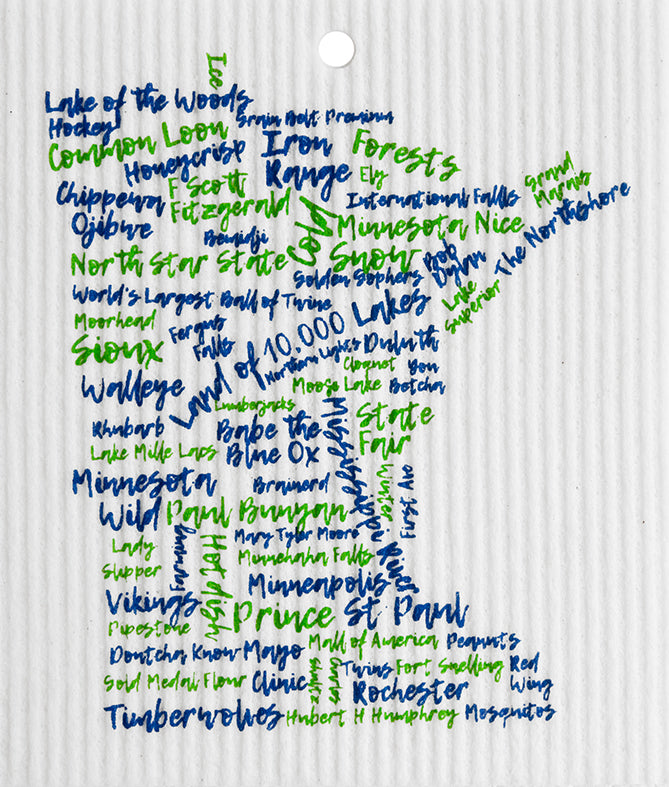 Ice
Lake of the Woods
Hockey
Grain Belt Premium
Common Loon
Iron
Range
Forests
Honeycrisp
Ely
Grand
Marais
Chippewa
F Scott
Fitzgerald
International Falls
The Northshore
Ojibwe
Bemidji
Cold
Minnesota Nice
North Star State
Snow
Bob
Dylan
Golden Gophers
Lake
Superior
World's Largest Ball of Twine
Moorhead
Fergus
Falls
Land of 10,000 Lakes
Northern Lights
Duluth
Sioux
Cloquet
You
Betcha
Walleye
Moose Lake
Lumberjacks
Mississippi River
State
Fair
Rhubarb
Babe the
Blue Ox
Lake Mille Lacs
Winter
First Ave
Minnesota
Wild
Brainerd
Paul Bunyan
Lady
Slipper
Farming
Hotdish
Mary Tyler Moore
Minnehaha Falls
Minneapolis
Vikings
Prince
St Paul
Pipestone
Mall of America
Peanuts
Dontcha Know
Mayo
Clinic
Charles
Shultz
Twins
Fort Snelling
Red
Wing
Gold Medal Flour
Rochester
Timberwolves
Hubert H Humphrey
Mosquitos